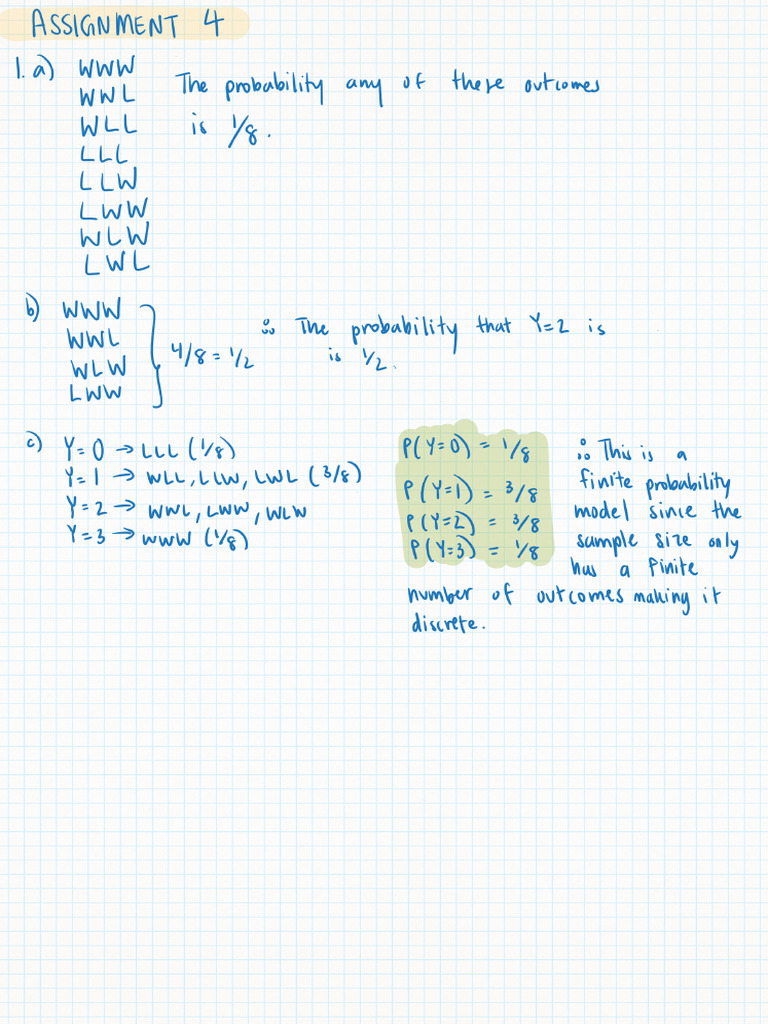 ASSIGNMENT 4
1. a) WWW
WWL
WLL
LLL
LLW
LWW
WLW
LWL
The probability any of these outcomes
is 1/8.
b) WWW
WWL
WLW
LWW
4/8 = 1/2
∴ The probability that Y=2 is
is 1/2.
c) Y=0 → LLL (1/8)
Y=1 → WLL, LLW, LWL (3/8)
Y=2 → WWL, LWW, WLW
Y=3 → WWW (1/8)
P(Y=0) = 1/8
P(Y=1) = 3/8
P(Y=2) = 3/8
P(Y=3) = 1/8
∴ This is a
finite probability
model since the
sample size only
has a finite
number of outcomes making it
discrete.